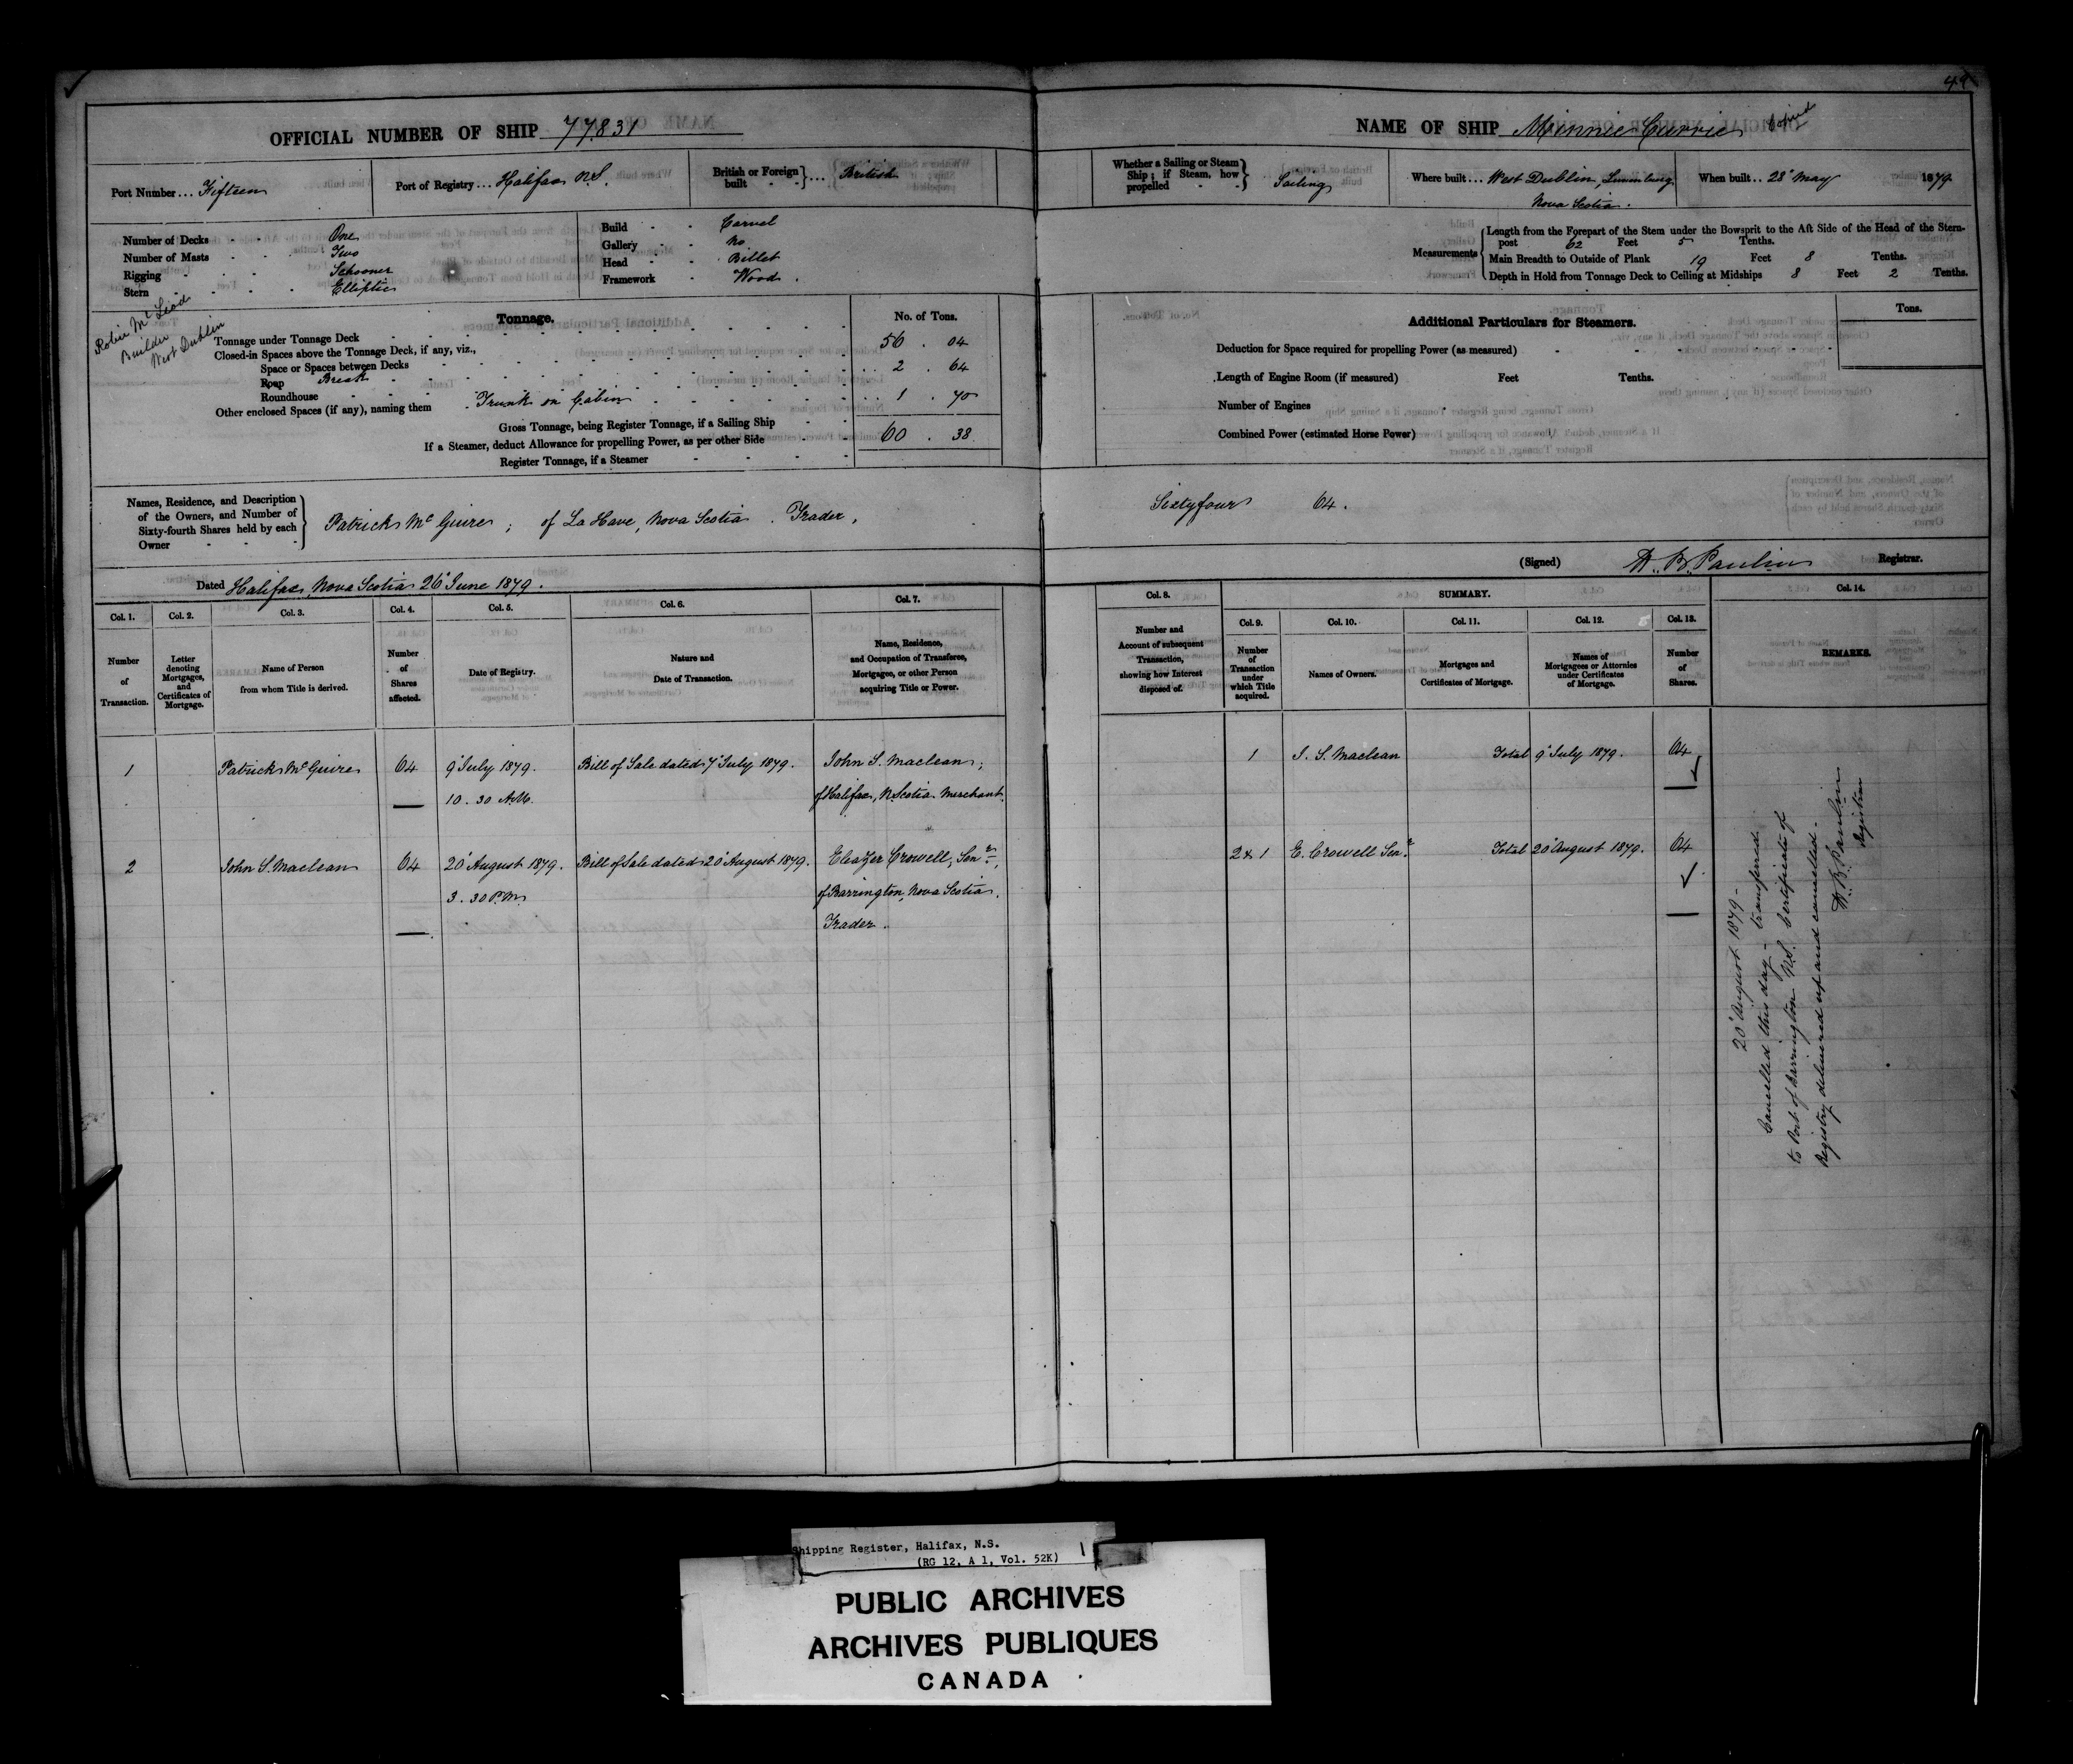 49
OFFICIAL NUMBER OF SHIP 77831
NAME OF SHIP Minnie Currie Copied
Port Number ... Fifteen
Port of Registry ... Halifax N.S.
British or Foreign built } ... British
Whether a Sailing or Steam Ship; if Steam, how propelled } Sailing
Where built ... West Dublin, Lunenburg
Nova Scotia.
When built .. 28 May 1879
Number of Decks One
Number of Masts Two
Rigging Schooner
Stern Elliptic
Build Carvel
Gallery No
Head Billet
Framework Wood.
Measurements
Length from the Forepart of the Stem under the Bowsprit to the Aft Side of the Head of the Stern-
post 62 Feet 5 Tenths.
Main Breadth to Outside of Plank 19 Feet 8 Tenths.
Depth in Hold from Tonnage Deck to Ceiling at Midships 8 Feet 2 Tenths.
Robie McLeod
Builder
West Dublin
Tonnage. No. of Tons.
Tonnage under Tonnage Deck 56 . 04
Closed-in Spaces above the Tonnage Deck, if any, viz.,
Space or Spaces between Decks 2 . 64
Poop Break
Roundhouse
Other enclosed Spaces (if any), naming them Trunk on Cabin 1 . 70
Gross Tonnage, being Register Tonnage, if a Sailing Ship 60 . 38
If a Steamer, deduct Allowance for propelling Power, as per other Side
Register Tonnage, if a Steamer
Additional Particulars for Steamers. Tons.
Deduction for Space required for propelling Power (as measured)
Length of Engine Room (if measured) Feet Tenths.
Number of Engines
Combined Power (estimated Horse Power)
Names, Residence, and Description
of the Owners, and Number of
Sixty-fourth Shares held by each
Owner
Patrick McGuire ; of La Have, Nova Scotia . Trader, Sixty four 64.
Dated Halifax, Nova Scotia 26 June 1879.
(Signed) W. B. Paulin Registrar.
Col. 1. Col. 2. Col. 3. Col. 4. Col. 5. Col. 6. Col. 7. Col. 8. SUMMARY. Col. 14.
Col. 9. Col. 10. Col. 11. Col. 12. Col. 13.
Number of Transaction.
Letter denoting Mortgages, and Certificates of Mortgage.
Name of Person from whom Title is derived.
Number of Shares affected.
Date of Registry.
Nature and Date of Transaction.
Name, Residence, and Occupation of Transferee, Mortgagee, or other Person acquiring Title or Power.
Number and Account of subsequent Transaction, showing how Interest disposed of.
Number of Transaction under which Title acquired.
Names of Owners.
Mortgages and Certificates of Mortgage.
Names of Mortgagees or Attornies under Certificates of Mortgage.
Number of Shares.
REMARKS.
1 Patrick McGuire 64 9 July 1879. Bill of Sale dated 7 July 1879. John S. Maclean;
10 . 30 A.M. of Halifax, N. Scotia Merchant.
1 J. S. Maclean Total 9 July 1879. 64
2 John S. Maclean 64 20 August 1879. Bill of Sale dated 20 August 1879. Eleazer Crowell, Senr,
3 . 30 P.M. of Barrington, Nova Scotia.
Trader.
2 & 1 E. Crowell Senr. Total 20 August 1879. 64
20 August 1879 -
Cancelled this day - transferred
to Port of Barrington N.S. Certificate of
Registry delivered up and cancelled -
W. B. Paulin
Registrar
Shipping Register, Halifax, N.S.
(RG 12, A 1, Vol. 52K)
PUBLIC ARCHIVES
ARCHIVES PUBLIQUES
CANADA